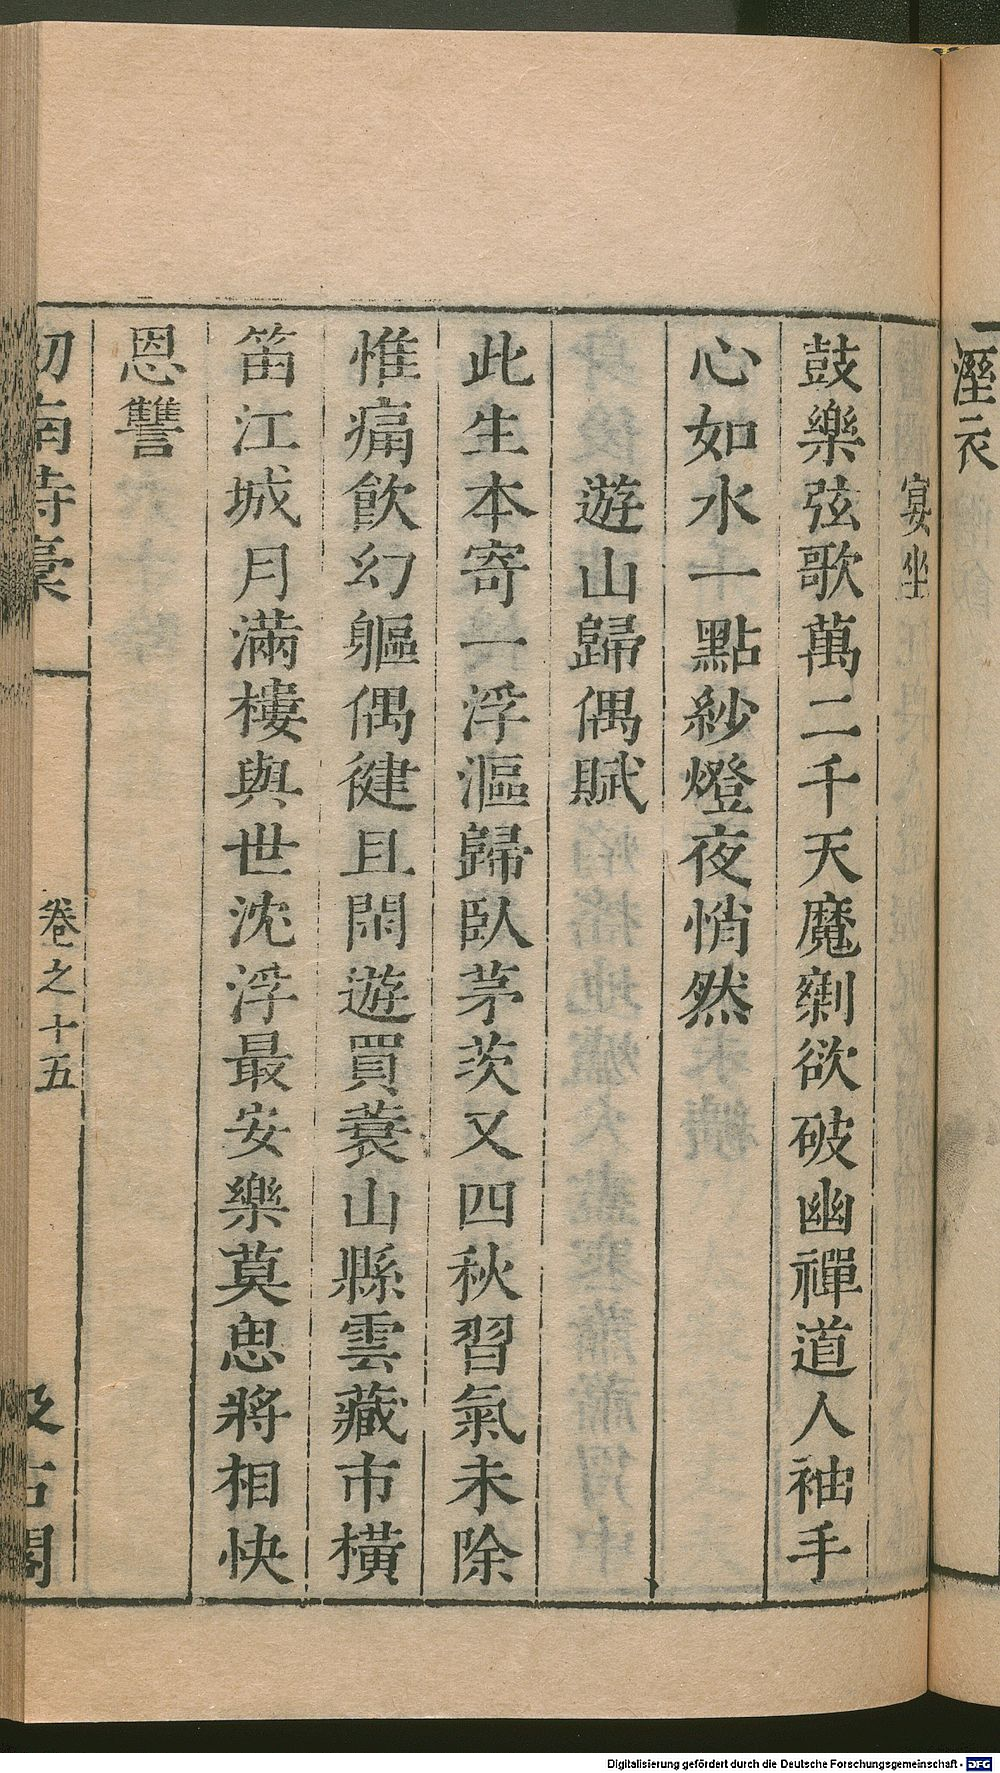 溼衣
宴坐
鼓樂弦歌萬二千天魔剿欲破幽禪道人袖手
心如水一點紗燈夜悄然
遊山歸偶賦
此生本寄一浮漚歸臥茅茨又四秋習氣未除
惟痛飲幻軀偶健且閑遊買蓑山縣雲藏市橫
笛江城月滿樓與世沈浮最安樂莫思將相快
恩讐
劒南詩稾
卷之十五
汲古閣
Digitalisierung gefördert durch die Deutsche Forschungsgemeinschaft - DFG